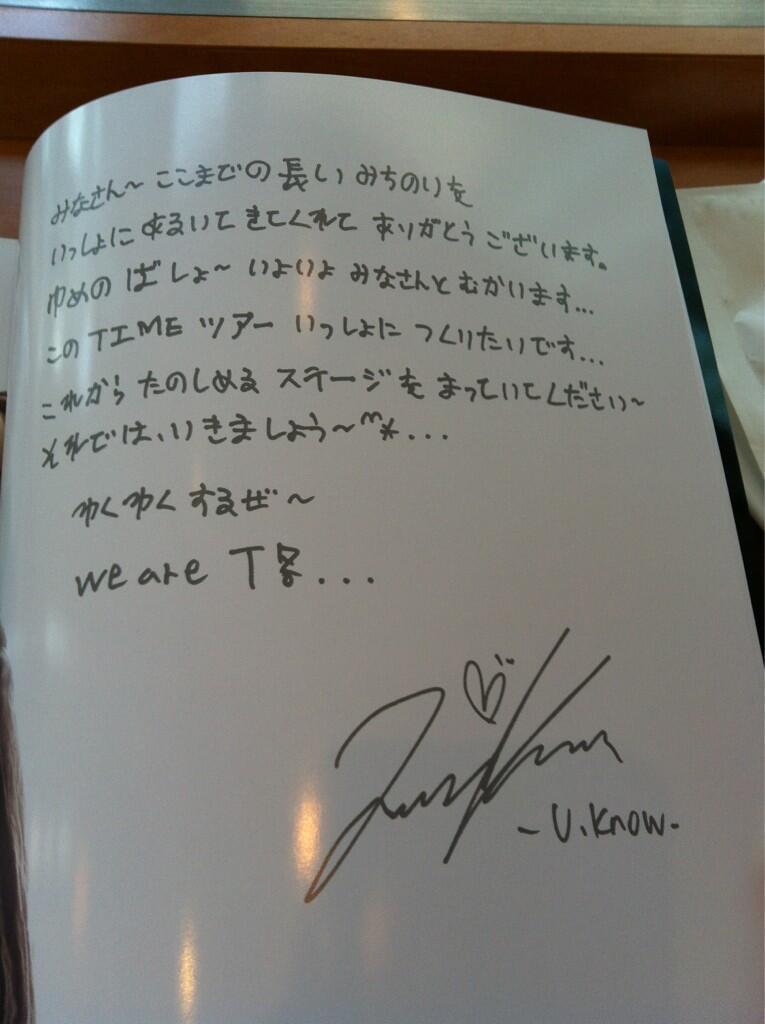 みなさん~ ここまでの 長い みちのりを
いっしょに あるいて きてくれて ありがとう ございます。
ゆめの ばしょ~ いよいよ みなさんと むかいます...
この TIME ツアー いっしょに つくりたいです...
これから たのしめる ステージを まっていてください~
それでは、いきましょう~^^*...
わくわく するぜ~
we are T...
- U.Know -